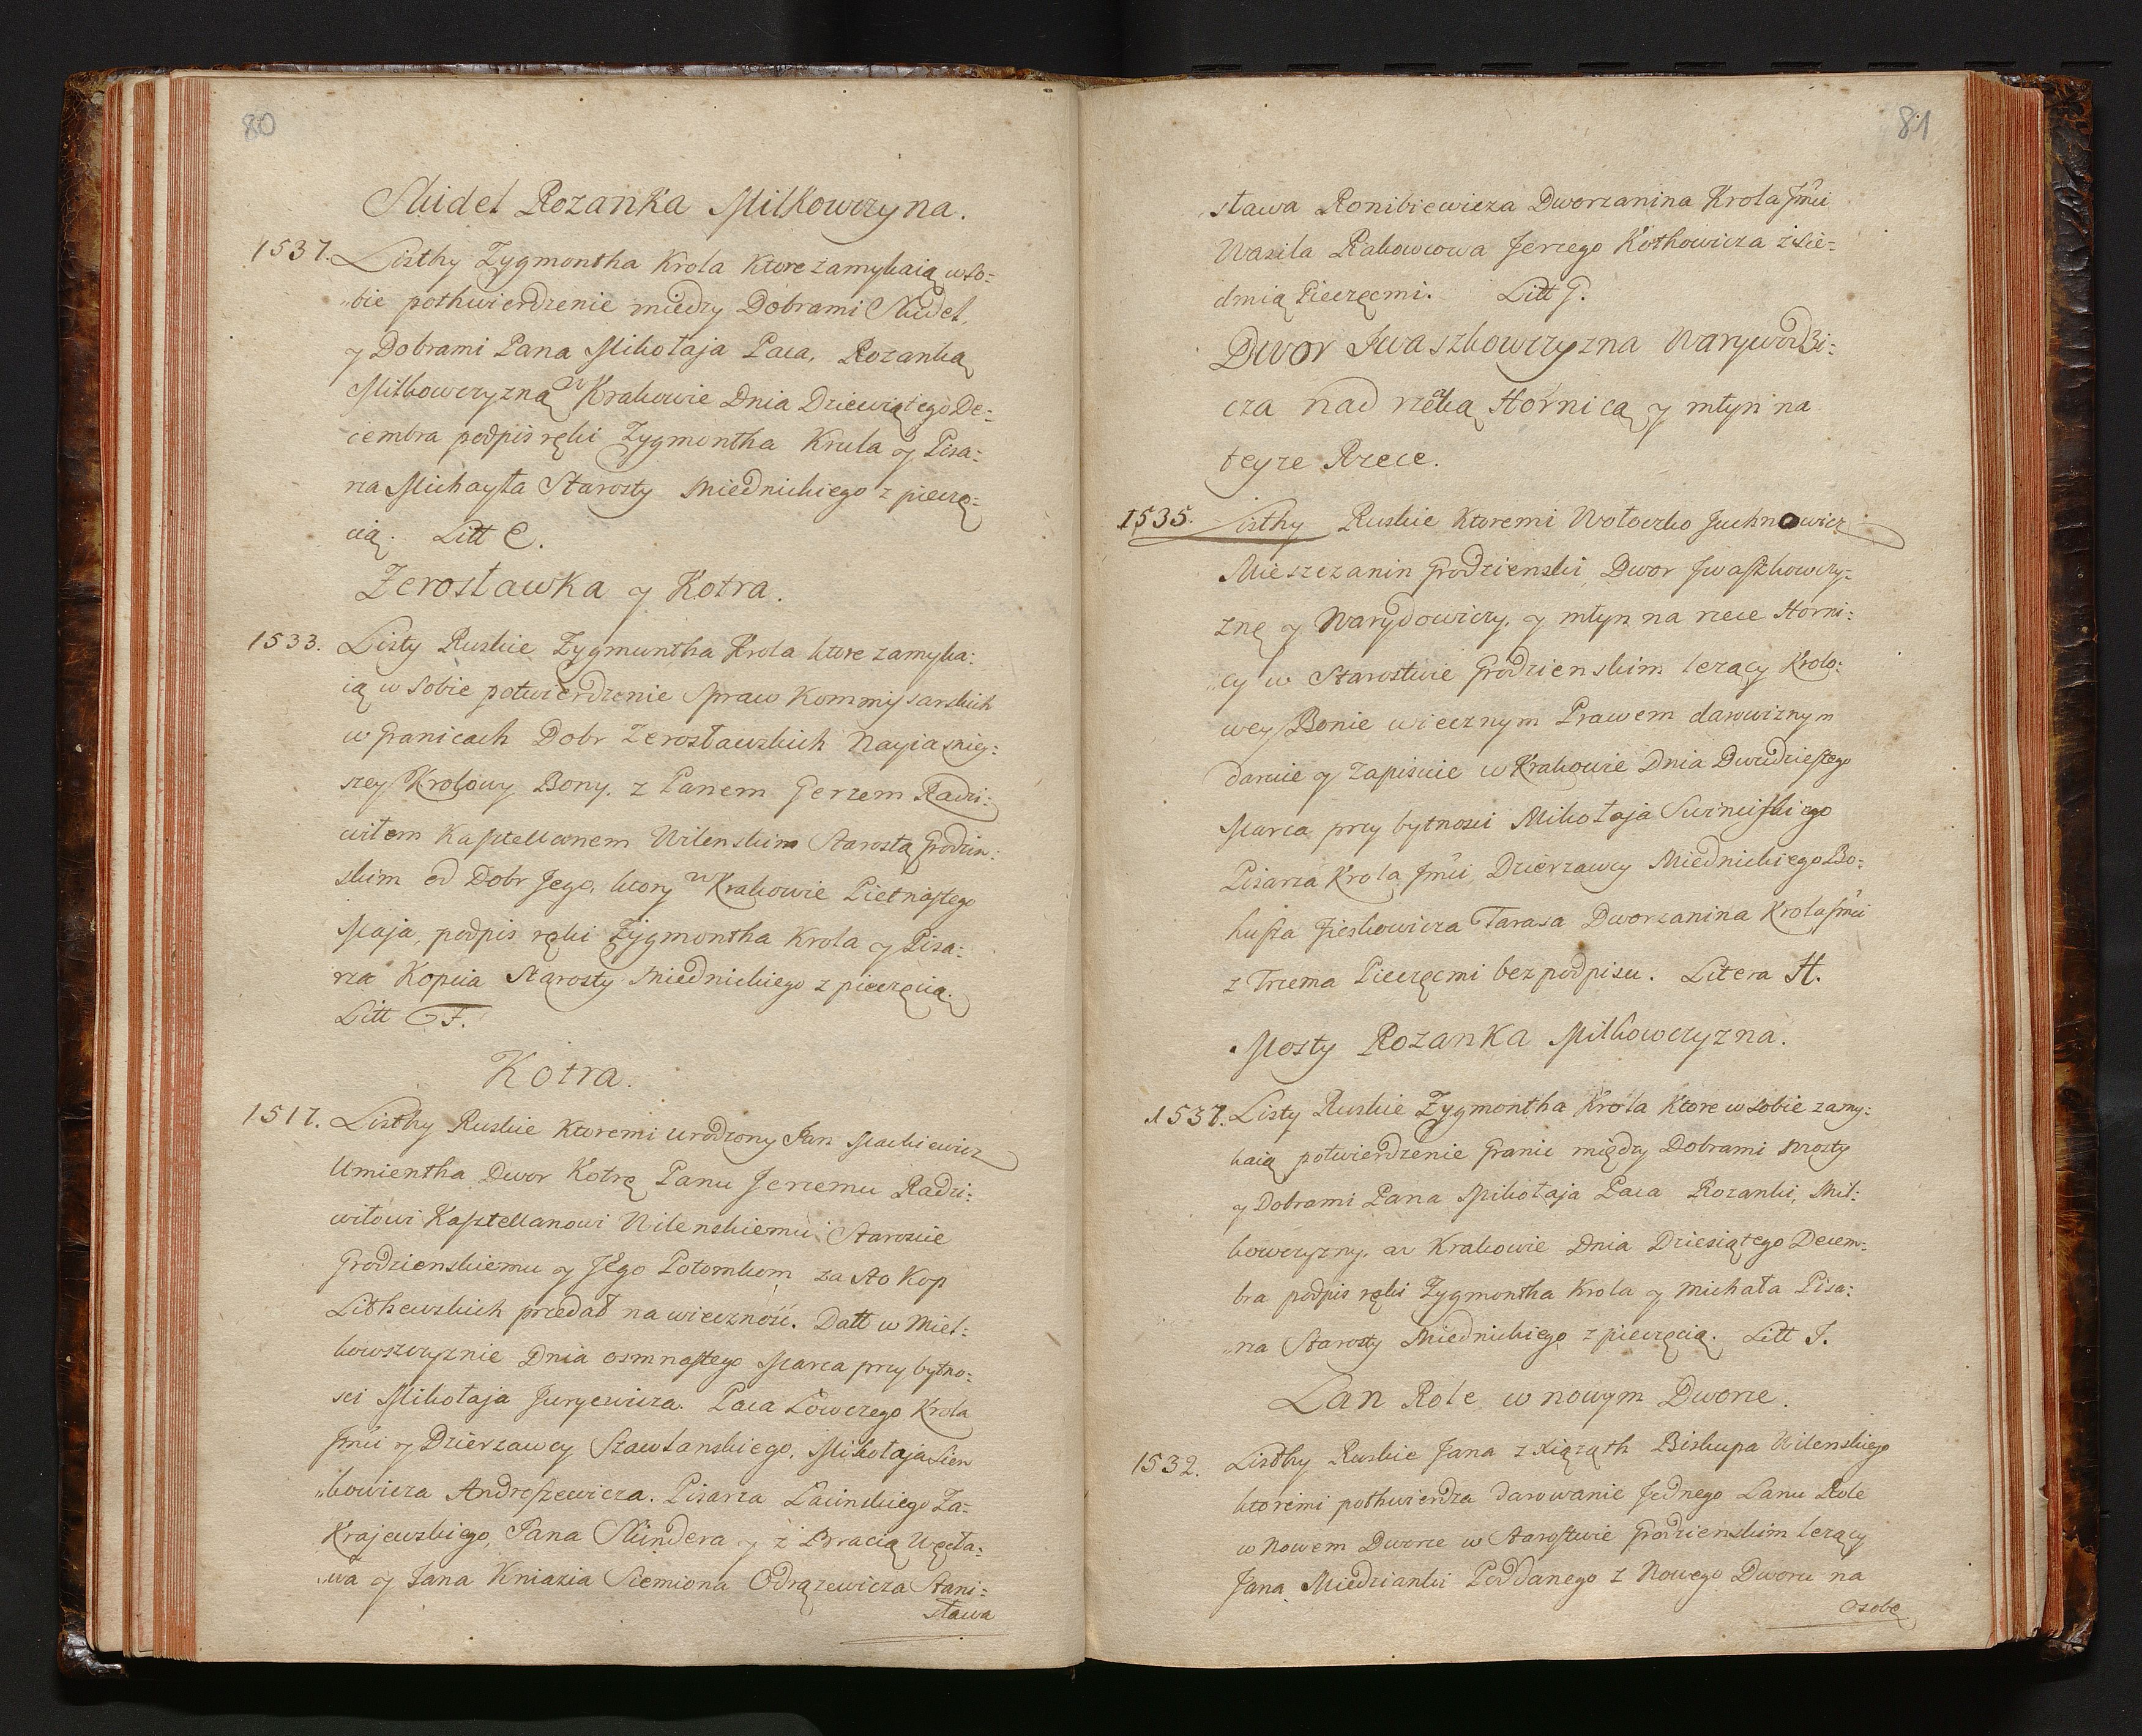 80
Skidel Rozanka Milkowczyna.
1537. Listhy Zygmontha Krola Ktore zamykaią w so=
bie pothwierdzenie miedzy Dobrami Skidel,
y Dobrami Pana Mikołaja Paca, Rozanką
Milkowczyzną w Krakowie Dnia Dziewiątego De=
cembra podpis ręki Zygmontha Krula y Pisa=
rza Michayła Starosty Miednickiego z pieczę=
cią. Litt E.
Zerosławka y Kotra.
1533. Listy Ruskie Zygmuntha Krola ktore zamyka=
ią w Sobie potwierdzenie Spraw Kommissarskich
w Granicach Dobr Zerosławskich Nayiasniey=
szey Krolowy Bony. z Panem Gerzem Radzi=
wiłem Kasztellanem Wilenskim Starostą Grodzin=
skim od Dobr Jego, ktory w Krakowie Pietnastego
Maja, podpis ręki Zygmontha Krola y Pisa=
rza Kopcia Starosty Miednickiego z pieczęcią.
Litt F.
Kotra.
1517. Listhy Ruskie Ktoremi urodzony Jan Mackiewicz
Umientha Dwor Kotrę Panu Jerzemu Radzi=
wiłowi Kasztellanowi Wilenskiemu Staroscie
Grodzienskiemu y JEgo Potomkom za Sto Kop
Lithewskich przedał na wieczność. Datt w Miel=
kowszczyznie Dnia osmnastego Marca przy bytno=
sci Mikołaja Juryewicza. Paca Łowczego Krola
Jmći y Dzierzawcy Szawlanskiego, Mikołaja Sien
kowicza Andreszewicza. Pisarza Łacinskiego Za=
Krajewskiego, Pana Skindera y z Bracią Węcła=
wa y Jana Kniazia Siemiona Odrązewicza Stani=
sława
81
sława Ronibiewicza Dworzanina Krola Jmći
Wasila Rakowcowa Jerzego Kothowicza z Sie=
dmią Pieczęcmi. Litt G.
Dwor Jwaszkowczyzna Warywodzi=
cza nad rzeką Hornicą y młyn na
teyze Rzece.
1535. Listhy Ruskie Ktoremi Wołoczko Juchnowicz
Mieszczanin Grodzienski, Dwor Jwaszkowczy=
znę y Warydowiczy, y młyn na rzece Horni=
cy w Starostwie Grodzienskim lezący Krolo=
wey Bonie wiecznym Prawem darowiznym
daruie y zapisuie w Krakowie Dnia Dwudziestego
Marca przy bytnosci Mikołaja
Pisarza Krola Jmći Dzierzawcy Miednickiego Bo=
husza Jieskowicza Tarasa Dworzanina Krola Jmći
z Trzema Pieczęcmi bez podpisu. Litera H.
Mosty Rozanka Milkowczyzna.
1537. Listy Ruskie Zygmontha Krola Ktore w Sobie zamy=
kaią potwierdzenie Granic między Dobrami Mosty
y Dobrami Pana Mikołaja Paca Rozanki, Mil=
kowczyzny, w Krakowie Dnia Dziesiątego Decem=
bra podpis ręki Zygmontha Krola y Michała Pisa=
rza Starosty Miednickiego z pieczęcią. Litt J.
Lan Role w nowym Dworze.
1532. Listhy Ruskie Jana z Xiąząth Biskupa Wilenskiego
ktoremi pothwierdza darowanie Jednego Lanu Role
w Nowem Dworze w Starostwie Grodzienskim lezący
Jana Miedzianki Poddanego z Nowego Dworu na
Osobę